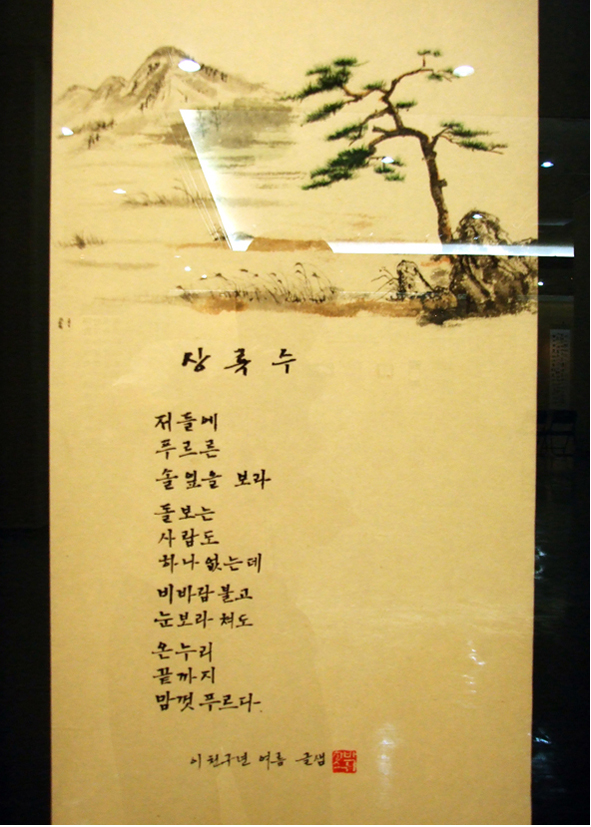 상록수
저들에
푸르른
솔잎을 보라
돌보는
사람도
하나 없는데
비바람 불고
눈보라 쳐도
온누리
끝까지
맘껏 푸르다.
이천구년 여름 글샘